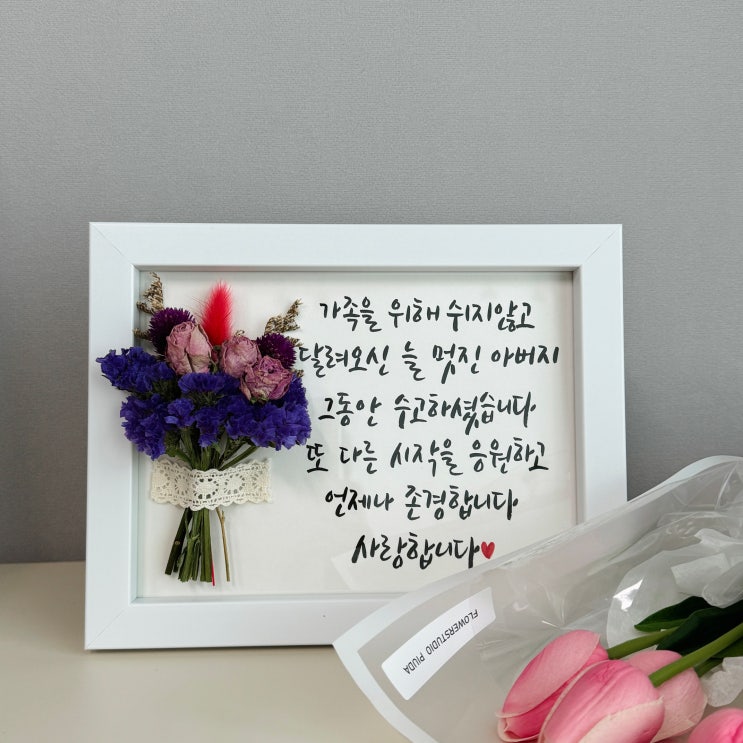 가족을 위해 쉬지않고
달려오신 늘 멋진 아버지
그동안 수고하셨습니다
또 다른 시작을 응원하고
언제나 존경합니다
사랑합니다
FLOWERSTUDIO PIUDA